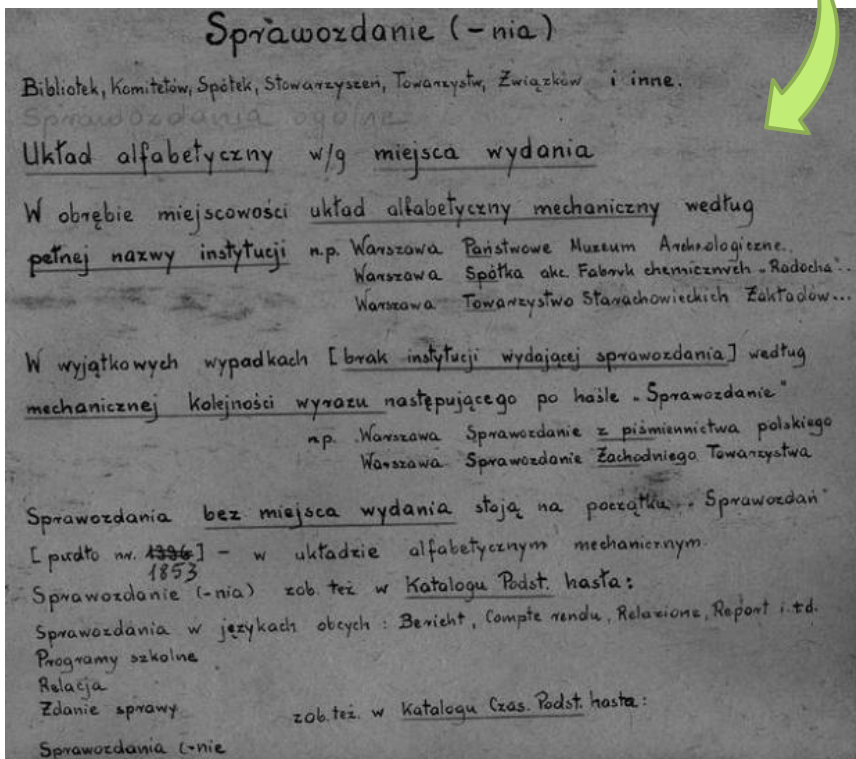 Sprawozdanie (-nia)
Bibliotek, Komitetów, Spółek, Stowarzyszeń, Towarzystw, Związków i inne.
Sprawozdania ogólne
Układ alfabetyczny w/g miejsca wydania
W obrębie miejscowości układ alfabetyczny mechaniczny według
pełnej nazwy instytucji n.p. Warszawa Państwowe Muzeum Archeologiczne..
Warszawa Spółka akc. Fabryk chemicznych „Radocha"..
Warszawa Towarzystwo Starachowieckich Zakładów...
W wyjątkowych wypadkach [brak instytucji wydającej sprawozdania] według
mechanicznej kolejności wyrazu następującego po haśle „Sprawozdanie"
np. Warszawa Sprawozdanie z piśmiennictwa polskiego
Warszawa Sprawozdanie Zachodniego Towarzystwa
Sprawozdania bez miejsca wydania stoją na początku „Sprawozdań"
[pudło nr. 1396] - w układzie alfabetycznym mechanicznym.
1853
Sprawozdanie (-nia) zob. też w Katalogu Podst. hasła:
Sprawozdania w językach obcych: Bericht, Compte rendu, Relazione, Report i.t.d.
Programy szkolne
Relacja
Zdanie sprawy zob. też. w Katalogu Czas. Podst. hasła:
Sprawozdania (-nie